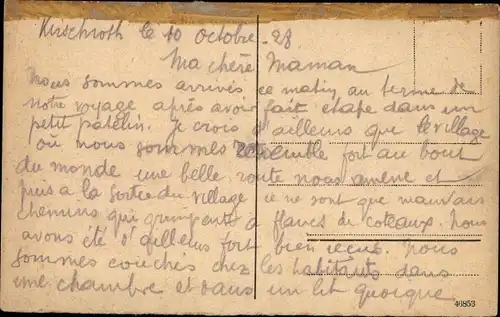 Kirschroth le 10 octobre 28
Ma chère Maman
Nous sommes arrivés ce matin au terme de
notre voyage après avoir fait étape dans un
petit patelin. Je crois d'ailleurs que le village
où nous sommes ressemble fort au bout
du monde une belle route nous amène et
puis a la sortie du village ce ne sont que mauvais
chemins qui grimpent a flancs de coteaux. Nous
avons été d'ailleurs fort bien recus. Nous
sommes couchés chez les habitants dans
une chambre et dans un lit quoique
46853